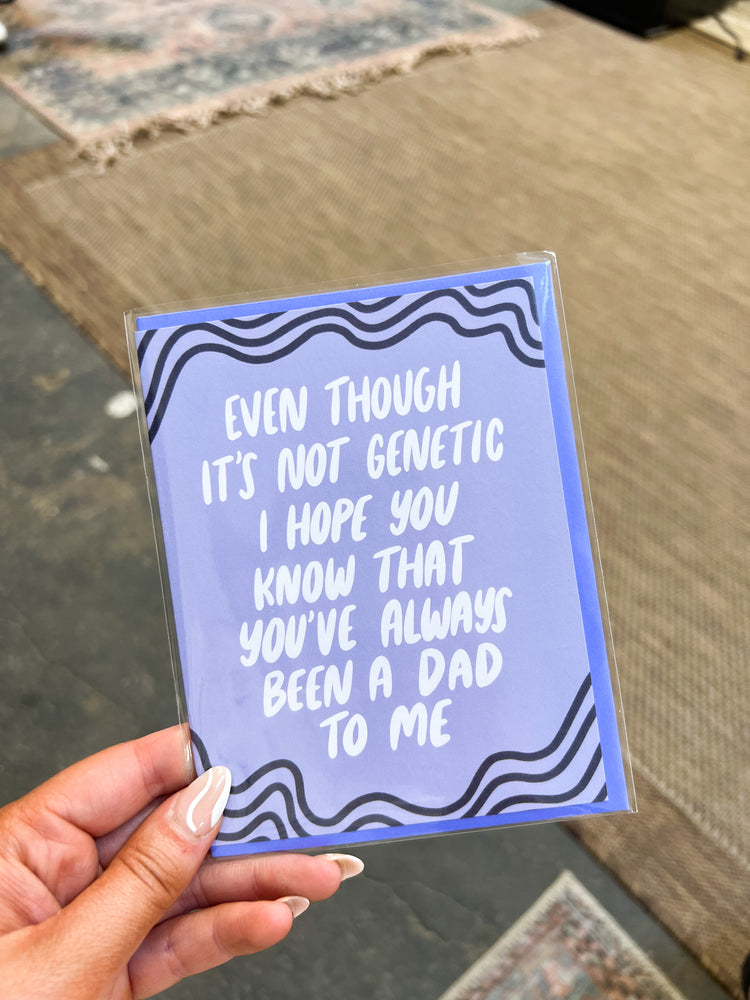 EVEN THOUGH
IT'S NOT GENETIC
I HOPE YOU
KNOW THAT
YOU'VE ALWAYS
BEEN A DAD
TO ME